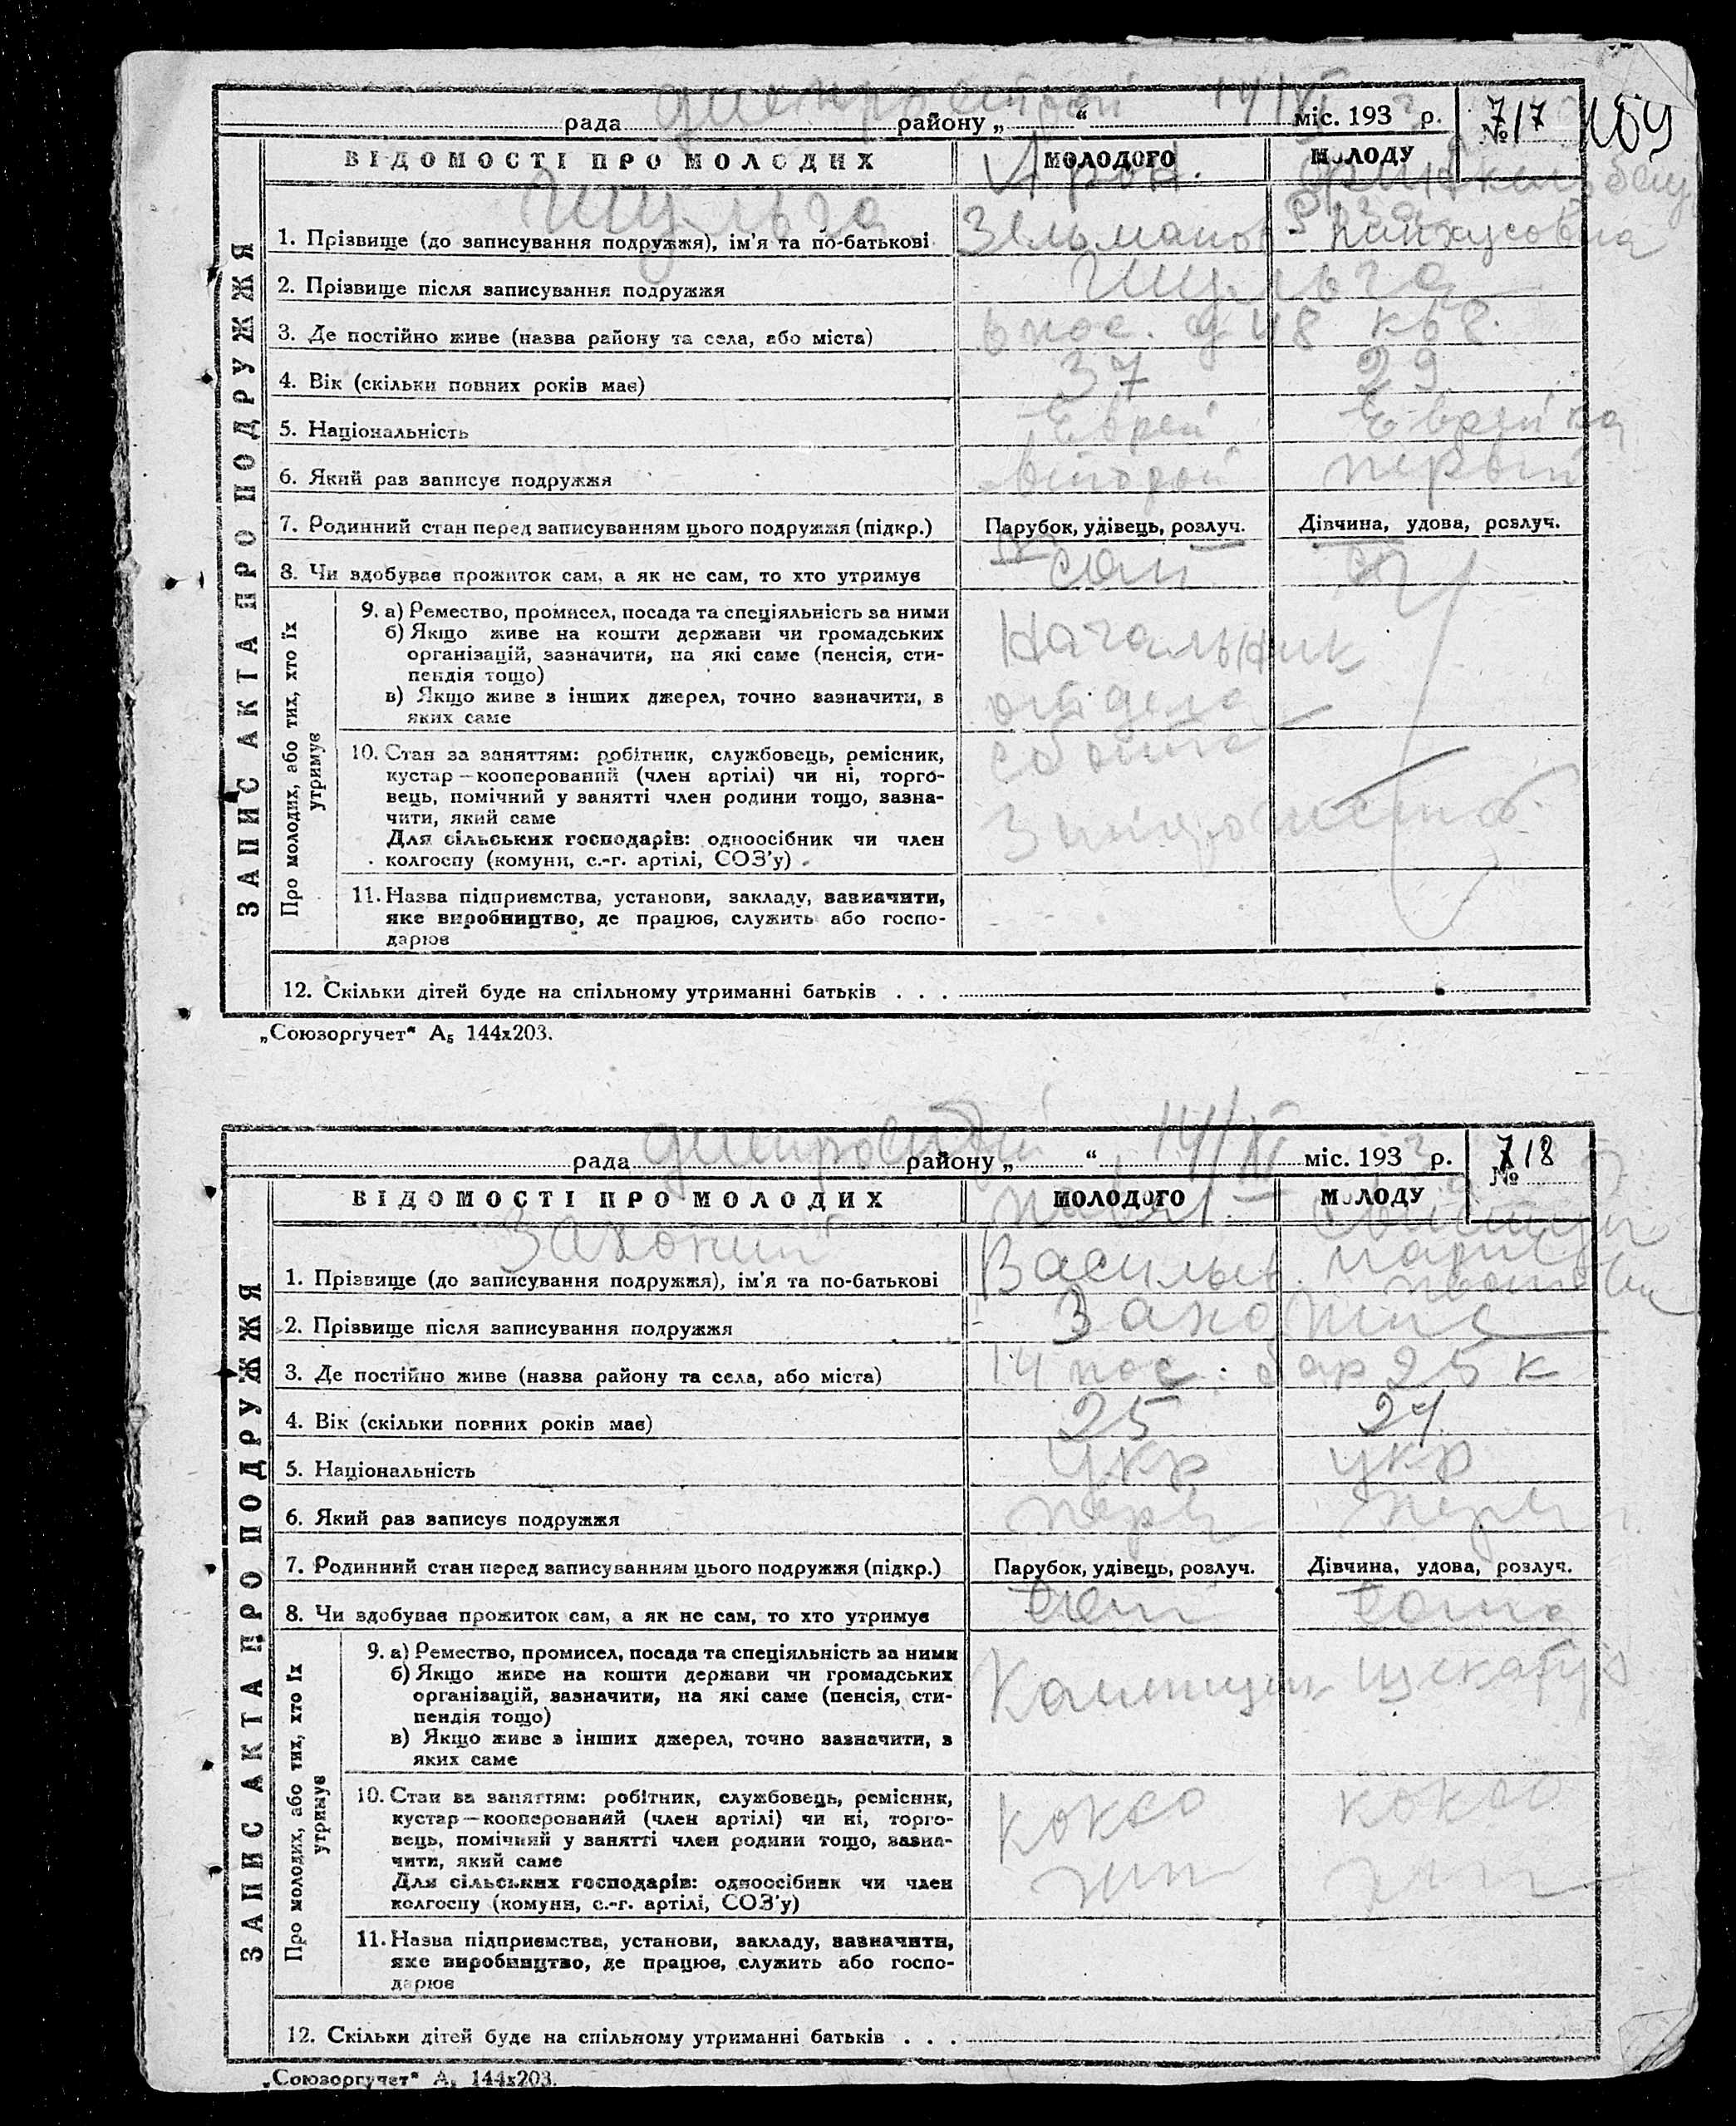 днепрострой 14/VI
рада району „ “ міс. 193 р.
№ 717
169
ВІДОМОСТІ ПРО МОЛОДИХ
МОЛОДОГО
МОЛОДУ
ЗАПИС АКТА ПРО ПОДРУЖЖЯ
Арон.
Шульга
1. Прізвище (до записування подружжя), ім’я та по-батькові
Зельманов
Пинхусовна
2. Прізвище після записування подружжя
Шульга
3. Де постійно живе (назва району та села, або міста)
6 пос. д 48 кв 8.
4. Вік (скільки повних років має)
37
29
5. Національність
Еврей
Еврейка
6. Який раз записує подружжя
второй
первый
7. Родинний стан перед записуванням цього подружжя (підкр.)
Парубок, удівець, розлуч.
Дівчина, удова, розлуч.
8. Чи здобуває прожиток сам, а як не сам, то хто утримує
сам
Про молодих, або тих, хто їх утримує
9. а) Ремество, промисел, посада та спеціяльність за ними
б) Якщо живе на кошти держави чи громадських
організацій, зазначити, на які саме (пенсія, сти-
пендія тощо)
в) Якщо живе з інших джерел, точно зазначити, з
яких саме
Начальник
отдела
сбыта
10. Стан за заняттям: робітник, службовець, ремісник,
кустар—кооперований (член артілі) чи ні, торго-
вець, помічний у занятті член родини тощо, зазна-
чити, який саме
Для сільських господарів: одноосібник чи член
колгоспу (комуни, с.-г. артілі, СОЗ’у)
11. Назва підприємства, установи, закладу, зазначити,
яке виробництво, де працює, служить або госпо-
дарює
12. Скільки дітей буде на спільному утриманні батьків . . .
„Союзоргучет“ А₅ 144х203.
днепрострой 14/VI
рада району „ “ міс. 193 р.
№ 718
ВІДОМОСТІ ПРО МОЛОДИХ
МОЛОДОГО
МОЛОДУ
ЗАПИС АКТА ПРО ПОДРУЖЖЯ
1. Прізвище (до записування подружжя), ім’я та по-батькові
Васильев.
Мария
2. Прізвище після записування подружжя
3. Де постійно живе (назва району та села, або міста)
14 пос. бар 25 к
4. Вік (скільки повних років має)
25
5. Національність
укр
укр
6. Який раз записує подружжя
перв
перв
7. Родинний стан перед записуванням цього подружжя (підкр.)
Парубок, удівець, розлуч.
Дівчина, удова, розлуч.
8. Чи здобуває прожиток сам, а як не сам, то хто утримує
сам
сама
Про молодих, або тих, хто їх утримує
9. а) Ремество, промисел, посада та спеціяльність за ними
б) Якщо живе на кошти держави чи громадських
організацій, зазначити, на які саме (пенсія, сти-
пендія тощо)
в) Якщо живе з інших джерел, точно зазначити, з
яких саме
Каменщик
10. Стан за заняттям: робітник, службовець, ремісник,
кустар—кооперований (член артілі) чи ні, торго-
вець, помічний у занятті член родини тощо, зазна-
чити, який саме
Для сільських господарів: одноосібник чи член
колгоспу (комуни, с.-г. артілі, СОЗ’у)
коксо
коксо
11. Назва підприємства, установи, закладу, зазначити,
яке виробництво, де працює, служить або госпо-
дарює
12. Скільки дітей буде на спільному утриманні батьків . . .
„Союзоргучет“ А₅ 144х203.